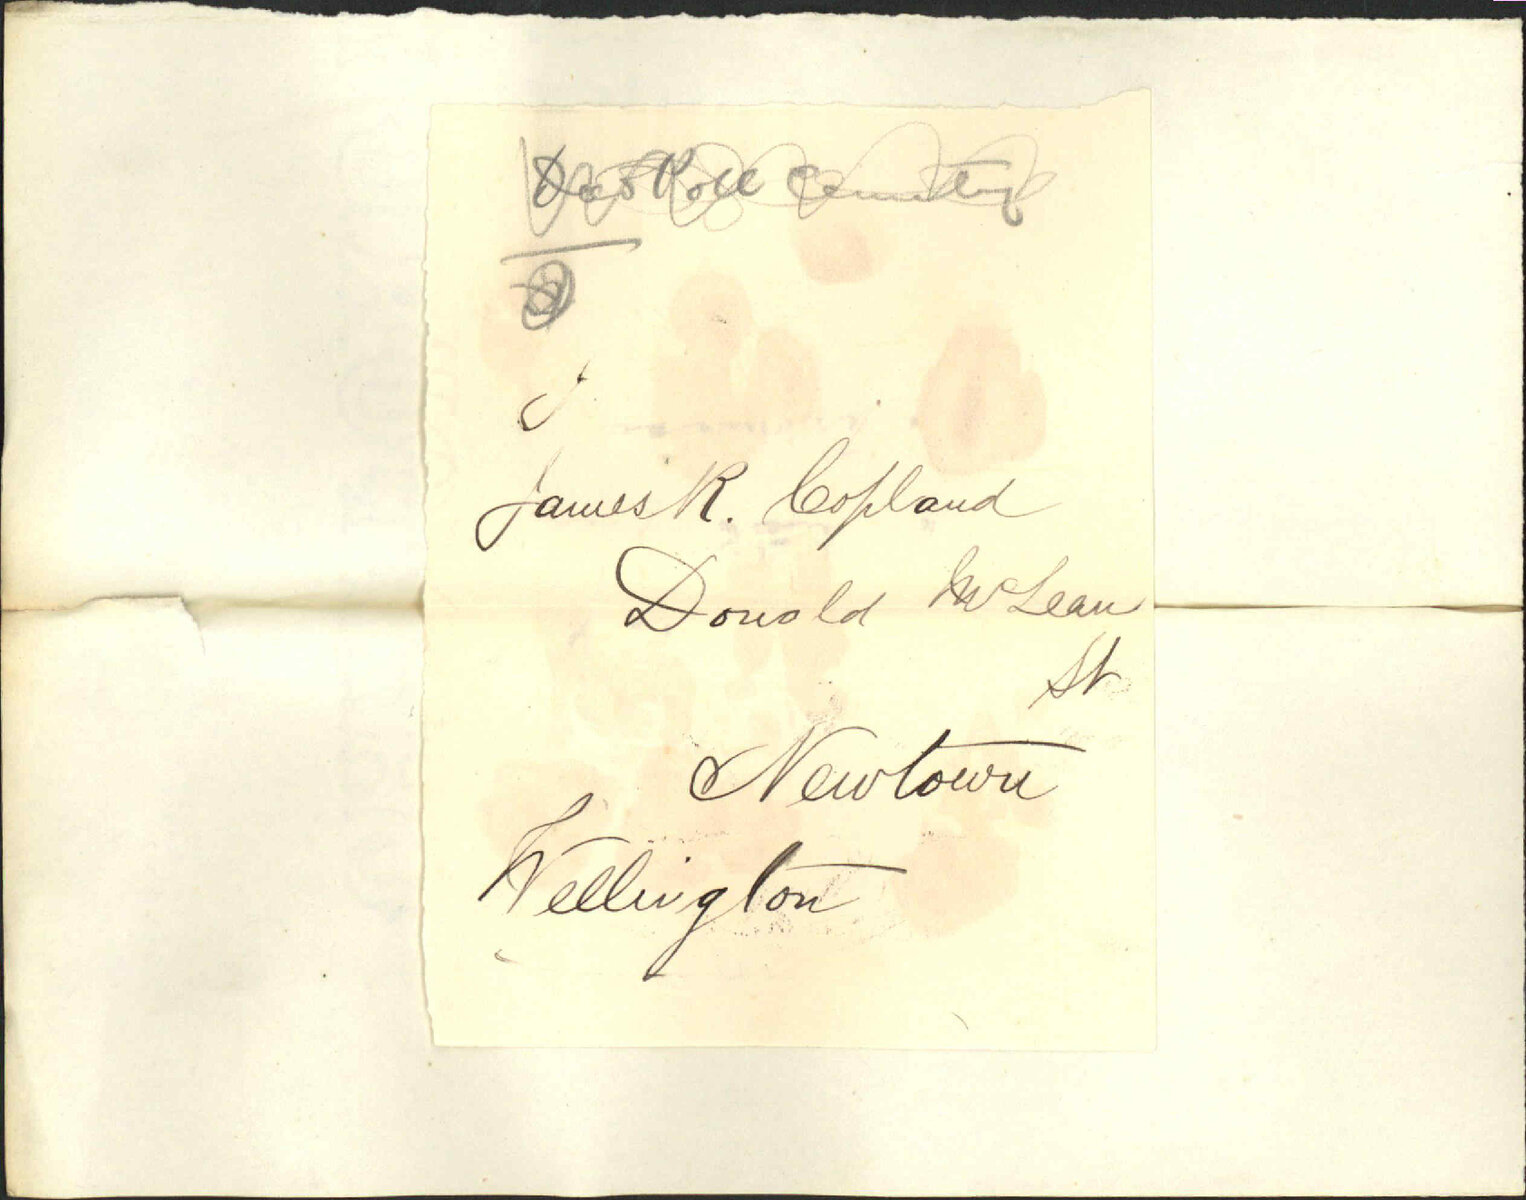 James R. Copland
Donald McLean
St
Newtown
Wellington